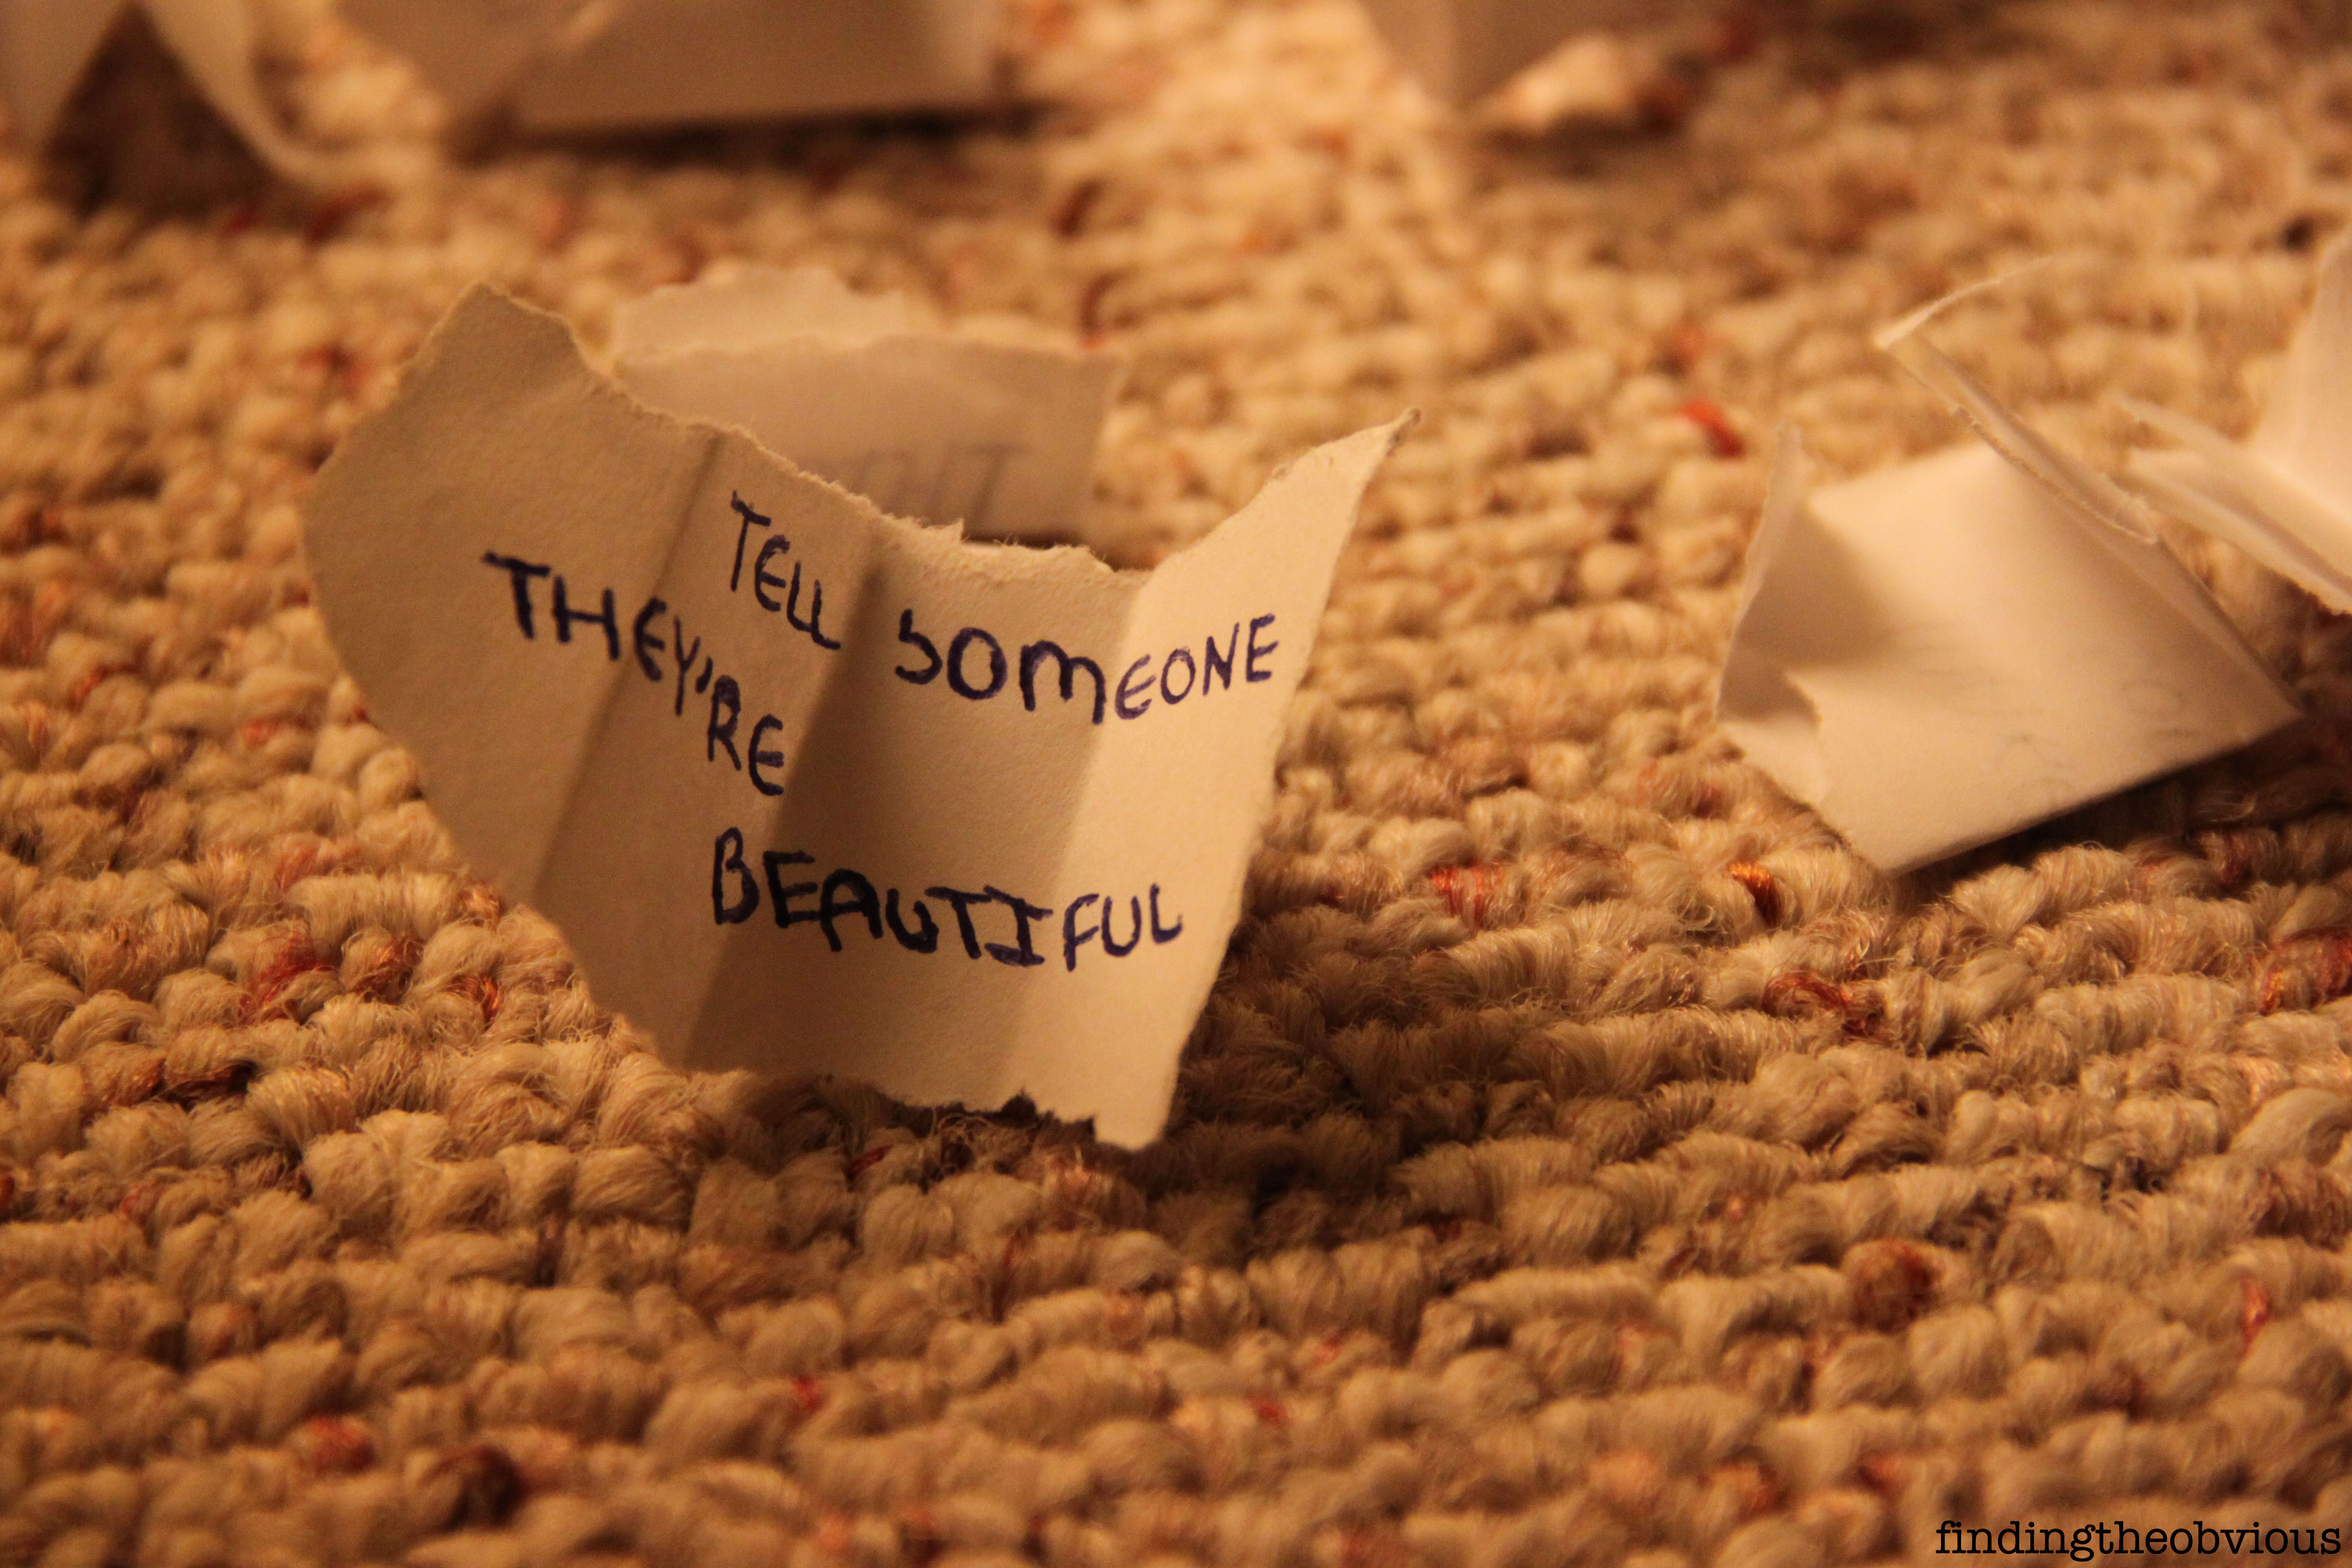 TELL SOMEONE
THEY'RE
BEAUTIFUL
findingtheobvious